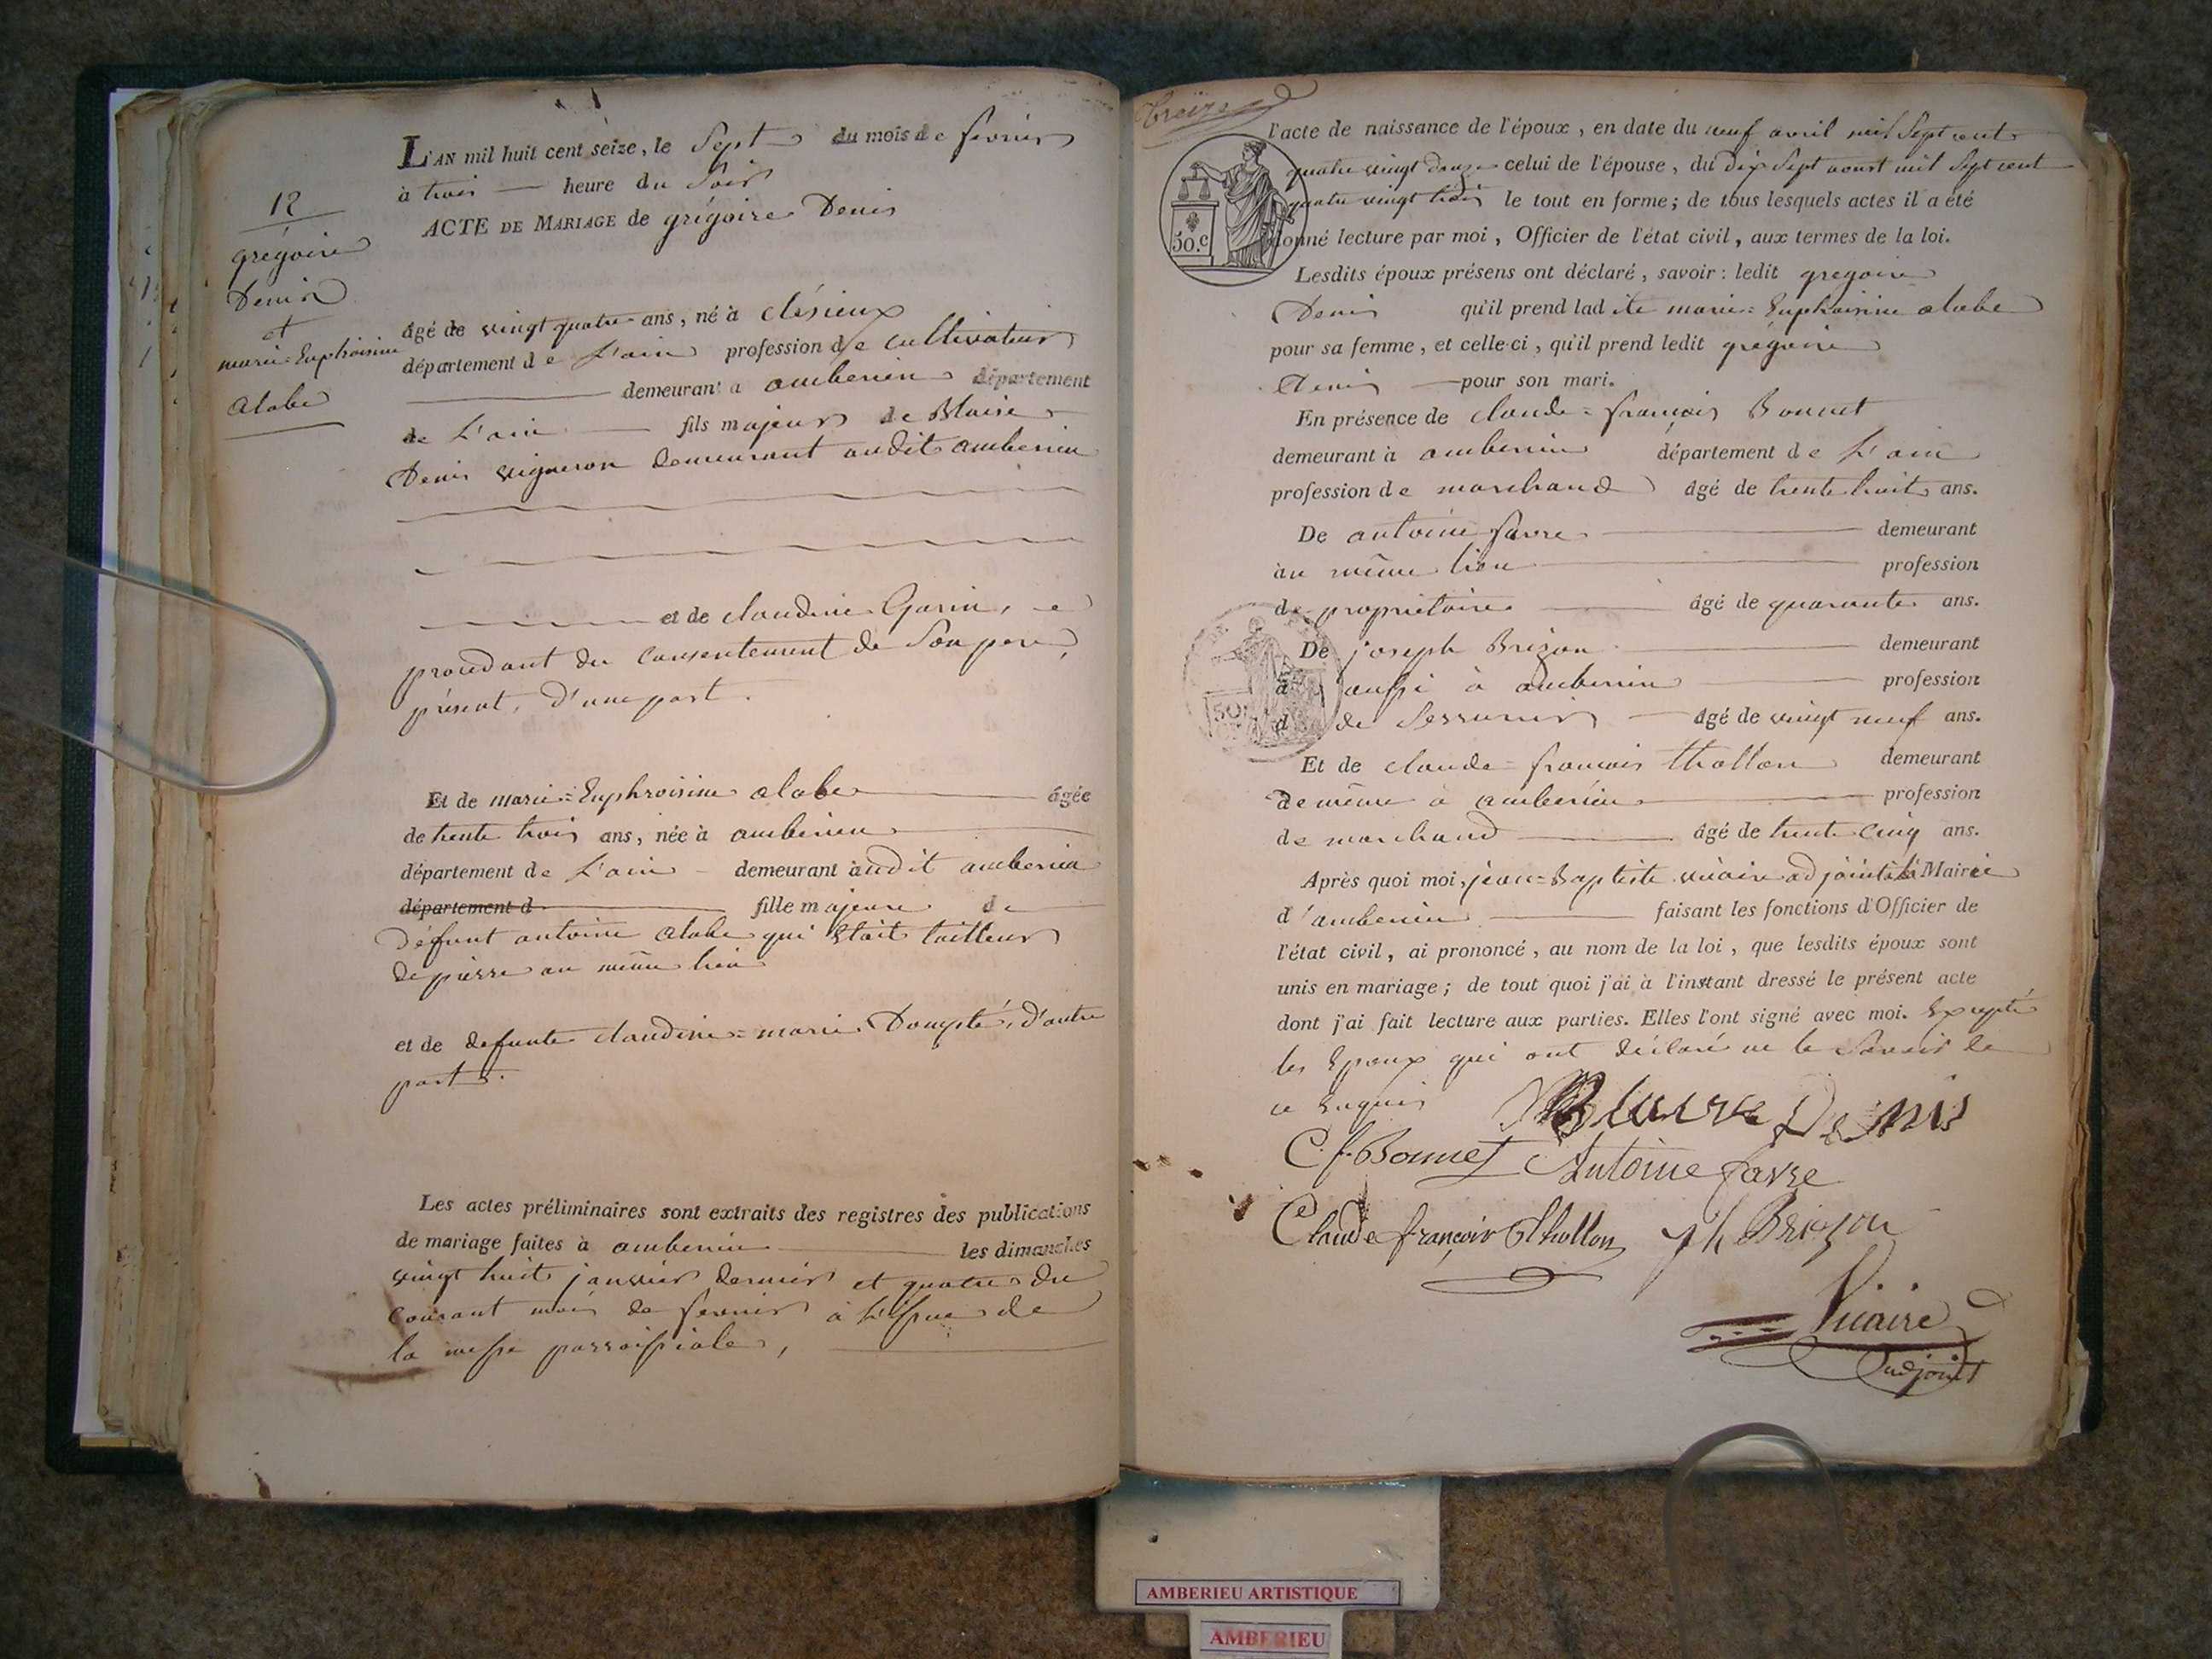 L'AN mil huit cent seize, le Sept du mois de fevrier
à trois heure du Soir
ACTE DE MARIAGE de grégoire Denis
12
grégoire
Denis
et
marie=Euphroisine
alabe
âgé de vingt quatre ans, né à clésieux
département de L'ain profession de cultivateur
demeurant a amberieu département
de L'ain fils majeur de Blaise
Denis vigneron demeurant audit amberieu
et de claudine Garin,
procédant du consentement de Son pere,
présent, d'une part.
Et de marie=Euphroisine alabe âgée
de trente trois ans, née à amberieu
département de L'ain demeurant audit amberieu
département d fille majeure de
défunt antoine alabe qui Etait tailleur
de pierre au même lieu
et de defunte claudine=marie Dompté, d'autre
part.
Les actes préliminaires sont extraits des registres des publications
de mariage faites à amberieu les dimanches
vingt huit janvier dernier et quatre du
courant mois de fevrier à l'issue de
la messe parroissiale,
treize
50.c
l'acte de naissance de l'époux, en date du neuf avril mil Sept cent
quatre vingt douze celui de l'épouse, du dix Sept aoust mil Sept cent
quatre vingt trois le tout en forme; de tous lesquels actes il a été
donné lecture par moi, Officier de l'état civil, aux termes de la loi.
Lesdits époux présens ont déclaré, savoir: ledit gregoire
Denis qu'il prend lad ite marie=Euphroisine alabe
pour sa femme, et celle-ci, qu'il prend ledit grégoire
Denis pour son mari.
En présence de claude=françois Bonnet
demeurant à amberieu département de L'ain
profession de marchand âgé de trente huit ans.
De antoine favre demeurant
au même lieu profession
de proprietaire âgé de quarante ans.
De joseph Brizon demeurant
à aussi à amberieu profession
d de Serrurier âgé de vingt neuf ans.
50
Et de claude=francois thollon demeurant
de même à amberieu profession
de marchand âgé de trente cinq ans.
Après quoi moi, jean=Baptiste vicaire adjoint à la Mairie
d'amberieu faisant les fonctions d'Officier de
l'état civil, ai prononcé, au nom de la loi, que lesdits époux sont
unis en mariage; de tout quoi j'ai à l'instant dressé le présent acte
dont j'ai fait lecture aux parties. Elles l'ont signé avec moi. Excepté
les Epoux qui ont déclaré ne le Savoir de
ce Enquis
Blaise Denis
C. f. Bonnet Antoine favre
Claude françois Thollon Jh Brizon
Vicaire
adjoint
AMBERIEU ARTISTIQUE
AMBERIEU